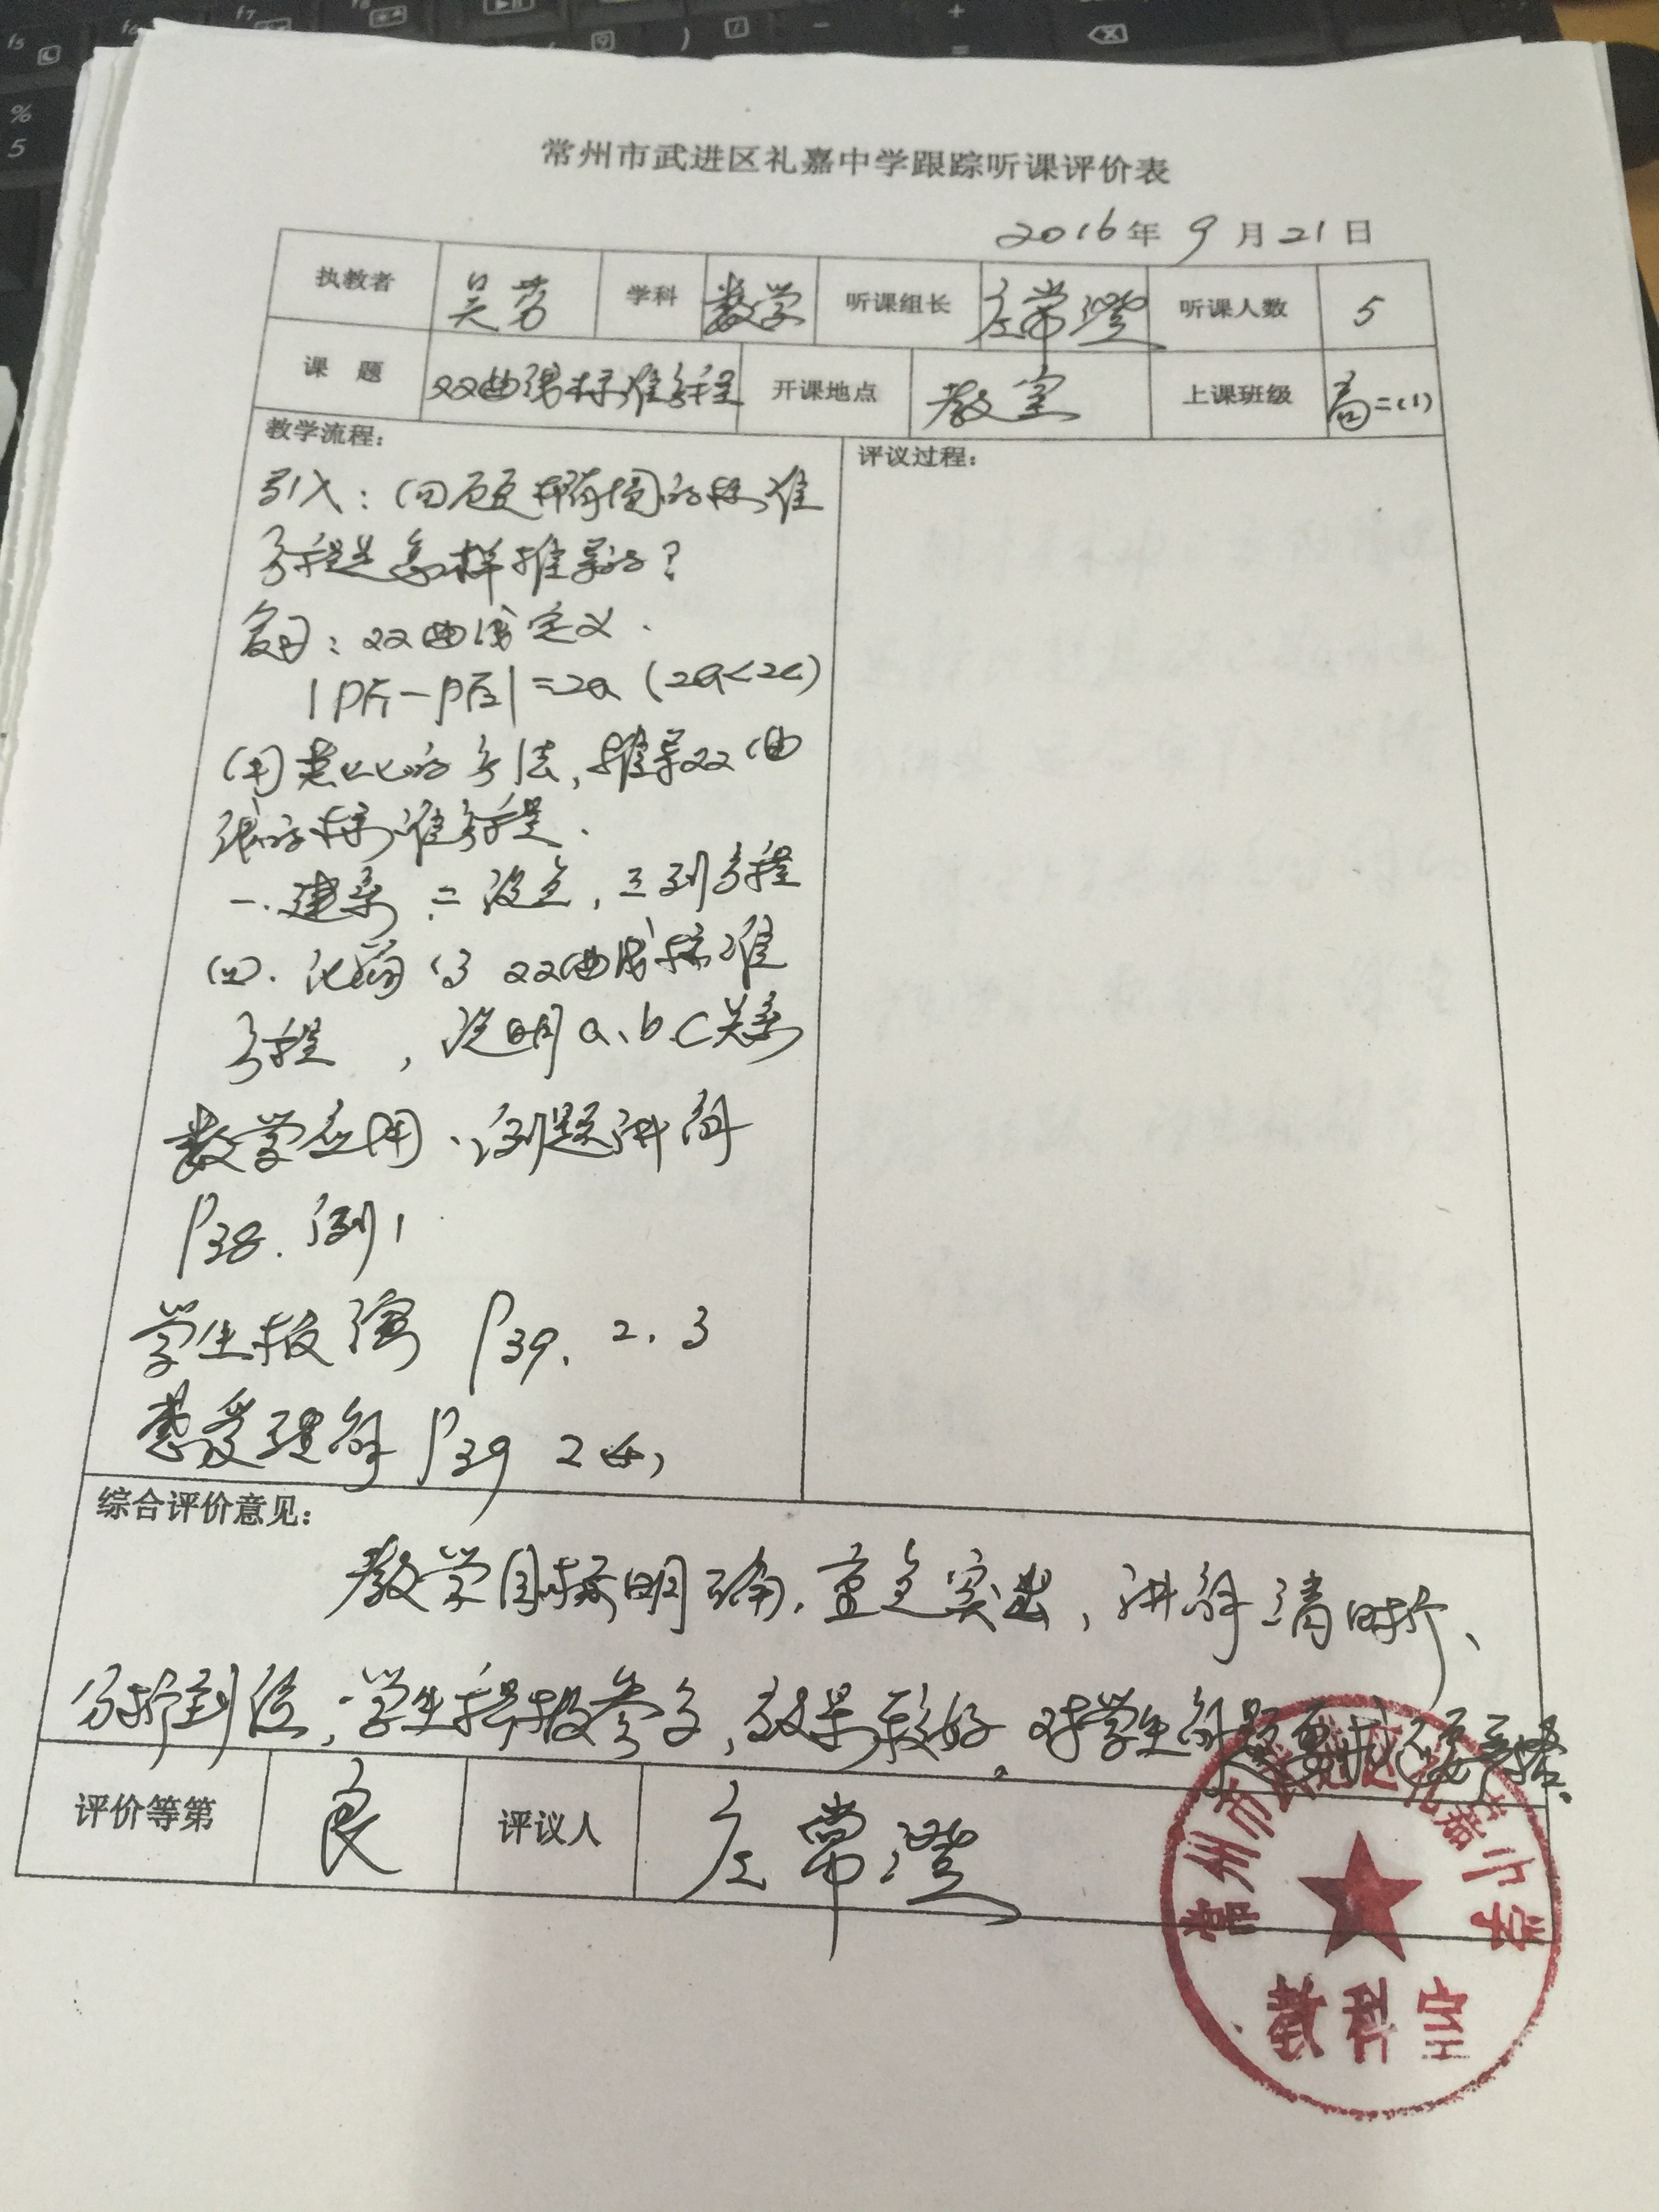 常州市武进区礼嘉中学跟踪听课评价表
2016年 9 月 21 日
执教者 吴芳 学科 数学 听课组长 庄常澄 听课人数 5
课 题 双曲线标准方程 开课地点 教室 上课班级 高二(1)
教学流程:
引入:回顾椭圆的标准
方程是怎样推导的?
复习:双曲线定义.
|PF₁-PF₂|=2a (2a<2c)
用类比的方法,推导双曲
线的标准方程.
一.建系 二设点,三列方程
四.化简得双曲线标准
方程 ,说明a、b、c关系
数学应用、例题讲解
P38.例1
学生板演 P39. 2. 3
感受理解 P39 2
评议过程:
综合评价意见:
教学目标明确.重点突出,讲解清晰、
分析到位,学生积极参与,效果较好。对学生
评价等第 良 评议人 庄常澄
常州市武进区礼嘉中学
教科室
f5
%
5